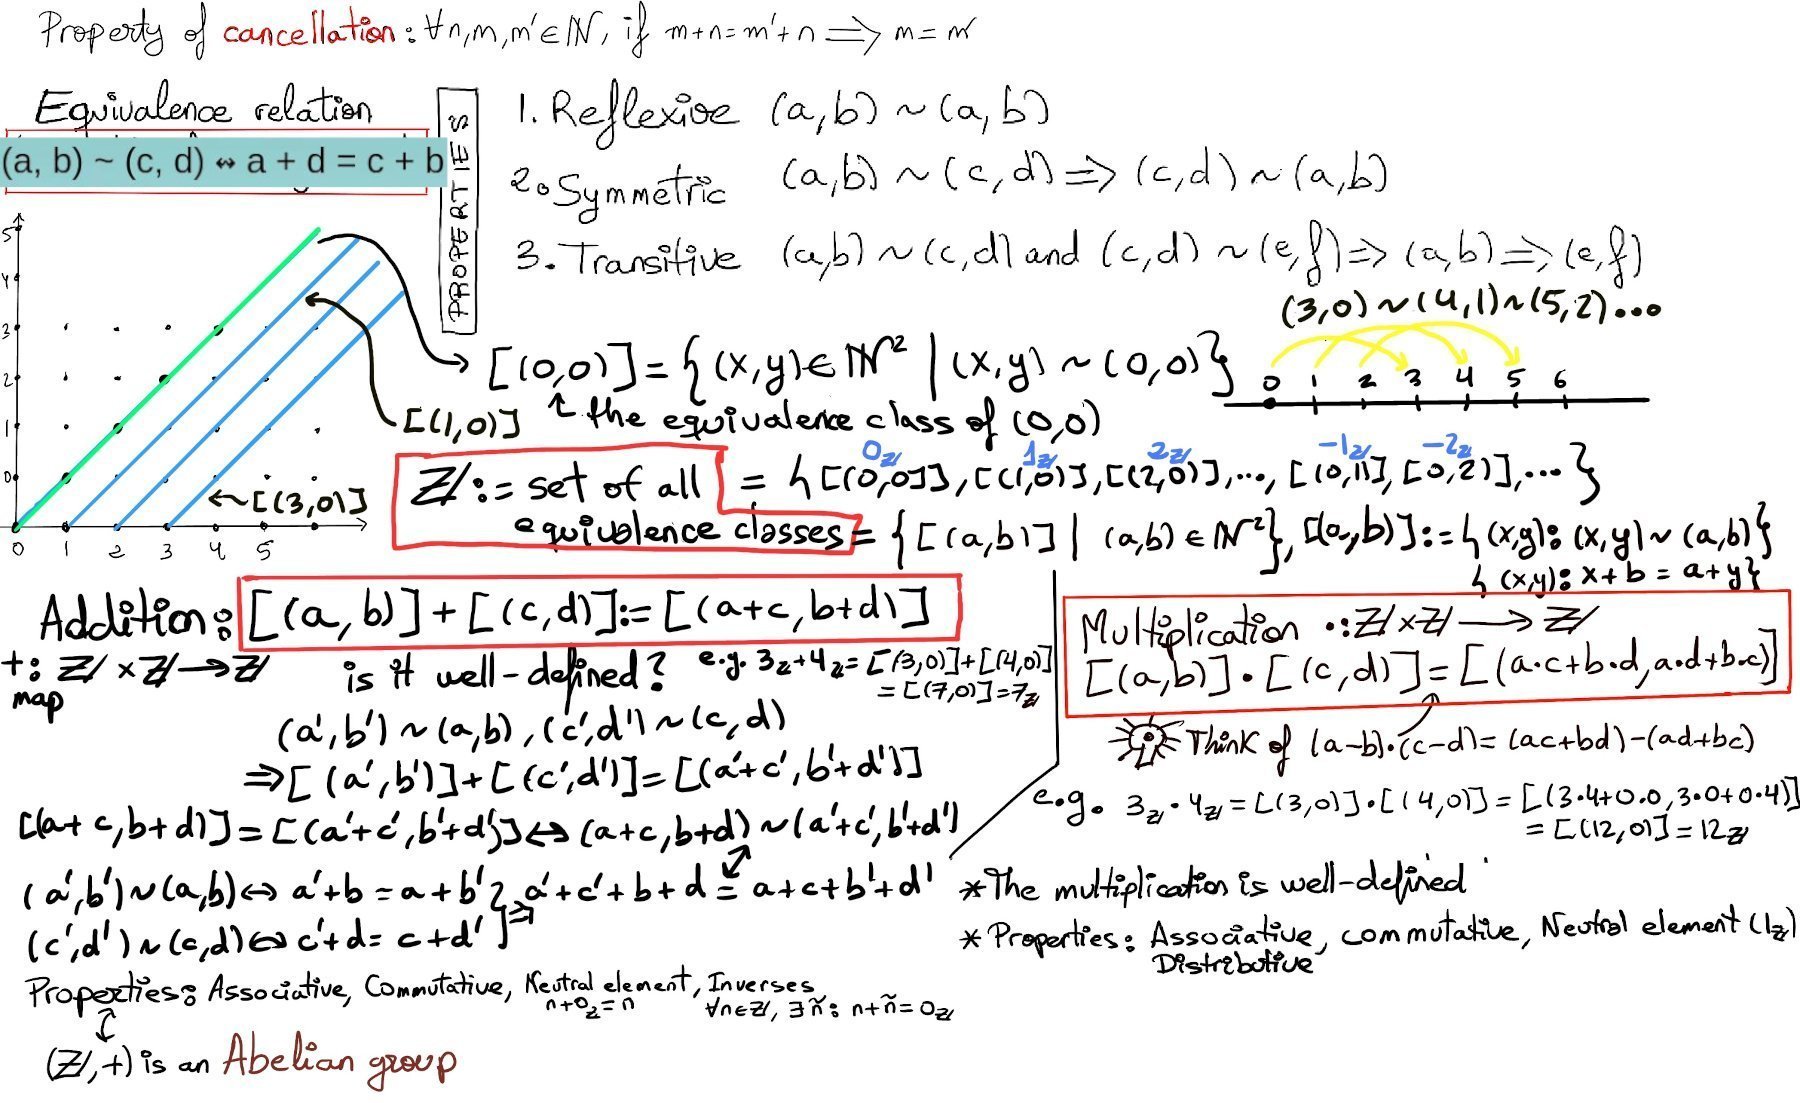 Property of cancellation: ∀n,m,m'∈ℕ, if m+n=m'+n ⟹ m=m'
Equivalence relation
(a, b) ~ (c, d) ↔ a + d = c + b
PROPERTIES
1. Reflexive (a,b) ~ (a,b)
2. Symmetric (a,b) ~ (c,d) ⟹ (c,d) ~ (a,b)
3. Transitive (a,b) ~ (c,d) and (c,d) ~ (e,f) ⟹ (a,b) ⟹ (e,f)
(3,0) ~ (4,1) ~ (5,2) ...
0 1 2 3 4 5 6
5
4
3
2
1
0
0 1 2 3 4 5
[(0,0)] = {(x,y) ∈ ℕ² | (x,y) ~ (0,0)}
↑ the equivalence class of (0,0)
[(1,0)]
[(3,0)]
0ℤ 1ℤ 2ℤ -1ℤ -2ℤ
ℤ := set of all = {[(0,0)], [(1,0)], [(2,0)], ..., [(0,1)], [0,2)], ...}
equivalence classes = {[(a,b)] | (a,b) ∈ ℕ²}, [(a,b)] := {(x,y): (x,y) ~ (a,b)}
{(x,y): x+b = a+y}
Addition: [(a,b)] + [(c,d)] := [(a+c, b+d)]
+: ℤ × ℤ → ℤ
map
is it well-defined? e.g. 3ℤ+4ℤ = [(3,0)]+[(4,0)]
= [(7,0)] = 7ℤ
(a',b') ~ (a,b), (c',d') ~ (c,d)
⟹ [(a',b')] + [(c',d')] = [(a'+c', b'+d')]
[(a+c, b+d)] = [(a'+c', b'+d')] ⟺ (a+c, b+d) ~ (a'+c', b'+d')
(a',b') ~ (a,b) ⟺ a'+b = a+b' ⟹ a'+c'+b+d = a+c+b'+d'
(c',d') ~ (c,d) ⟺ c'+d = c+d'
Properties: Associative, Commutative, Neutral element, Inverses
n+0ℤ = n ∀n∈ℤ, ∃ñ: n+ñ = 0ℤ
(ℤ,+) is an Abelian group
Multiplication ·: ℤ × ℤ → ℤ
[(a,b)] · [(c,d)] = [(a·c+b·d, a·d+b·c)]
Think of (a-b)·(c-d) = (ac+bd)-(ad+bc)
e.g. 3ℤ · 4ℤ = [(3,0)] · [(4,0)] = [(3·4+0·0, 3·0+0·4)]
= [(12,0)] = 12ℤ
* The multiplication is well-defined
* Properties: Associative, commutative, Neutral element (1ℤ)
Distributive